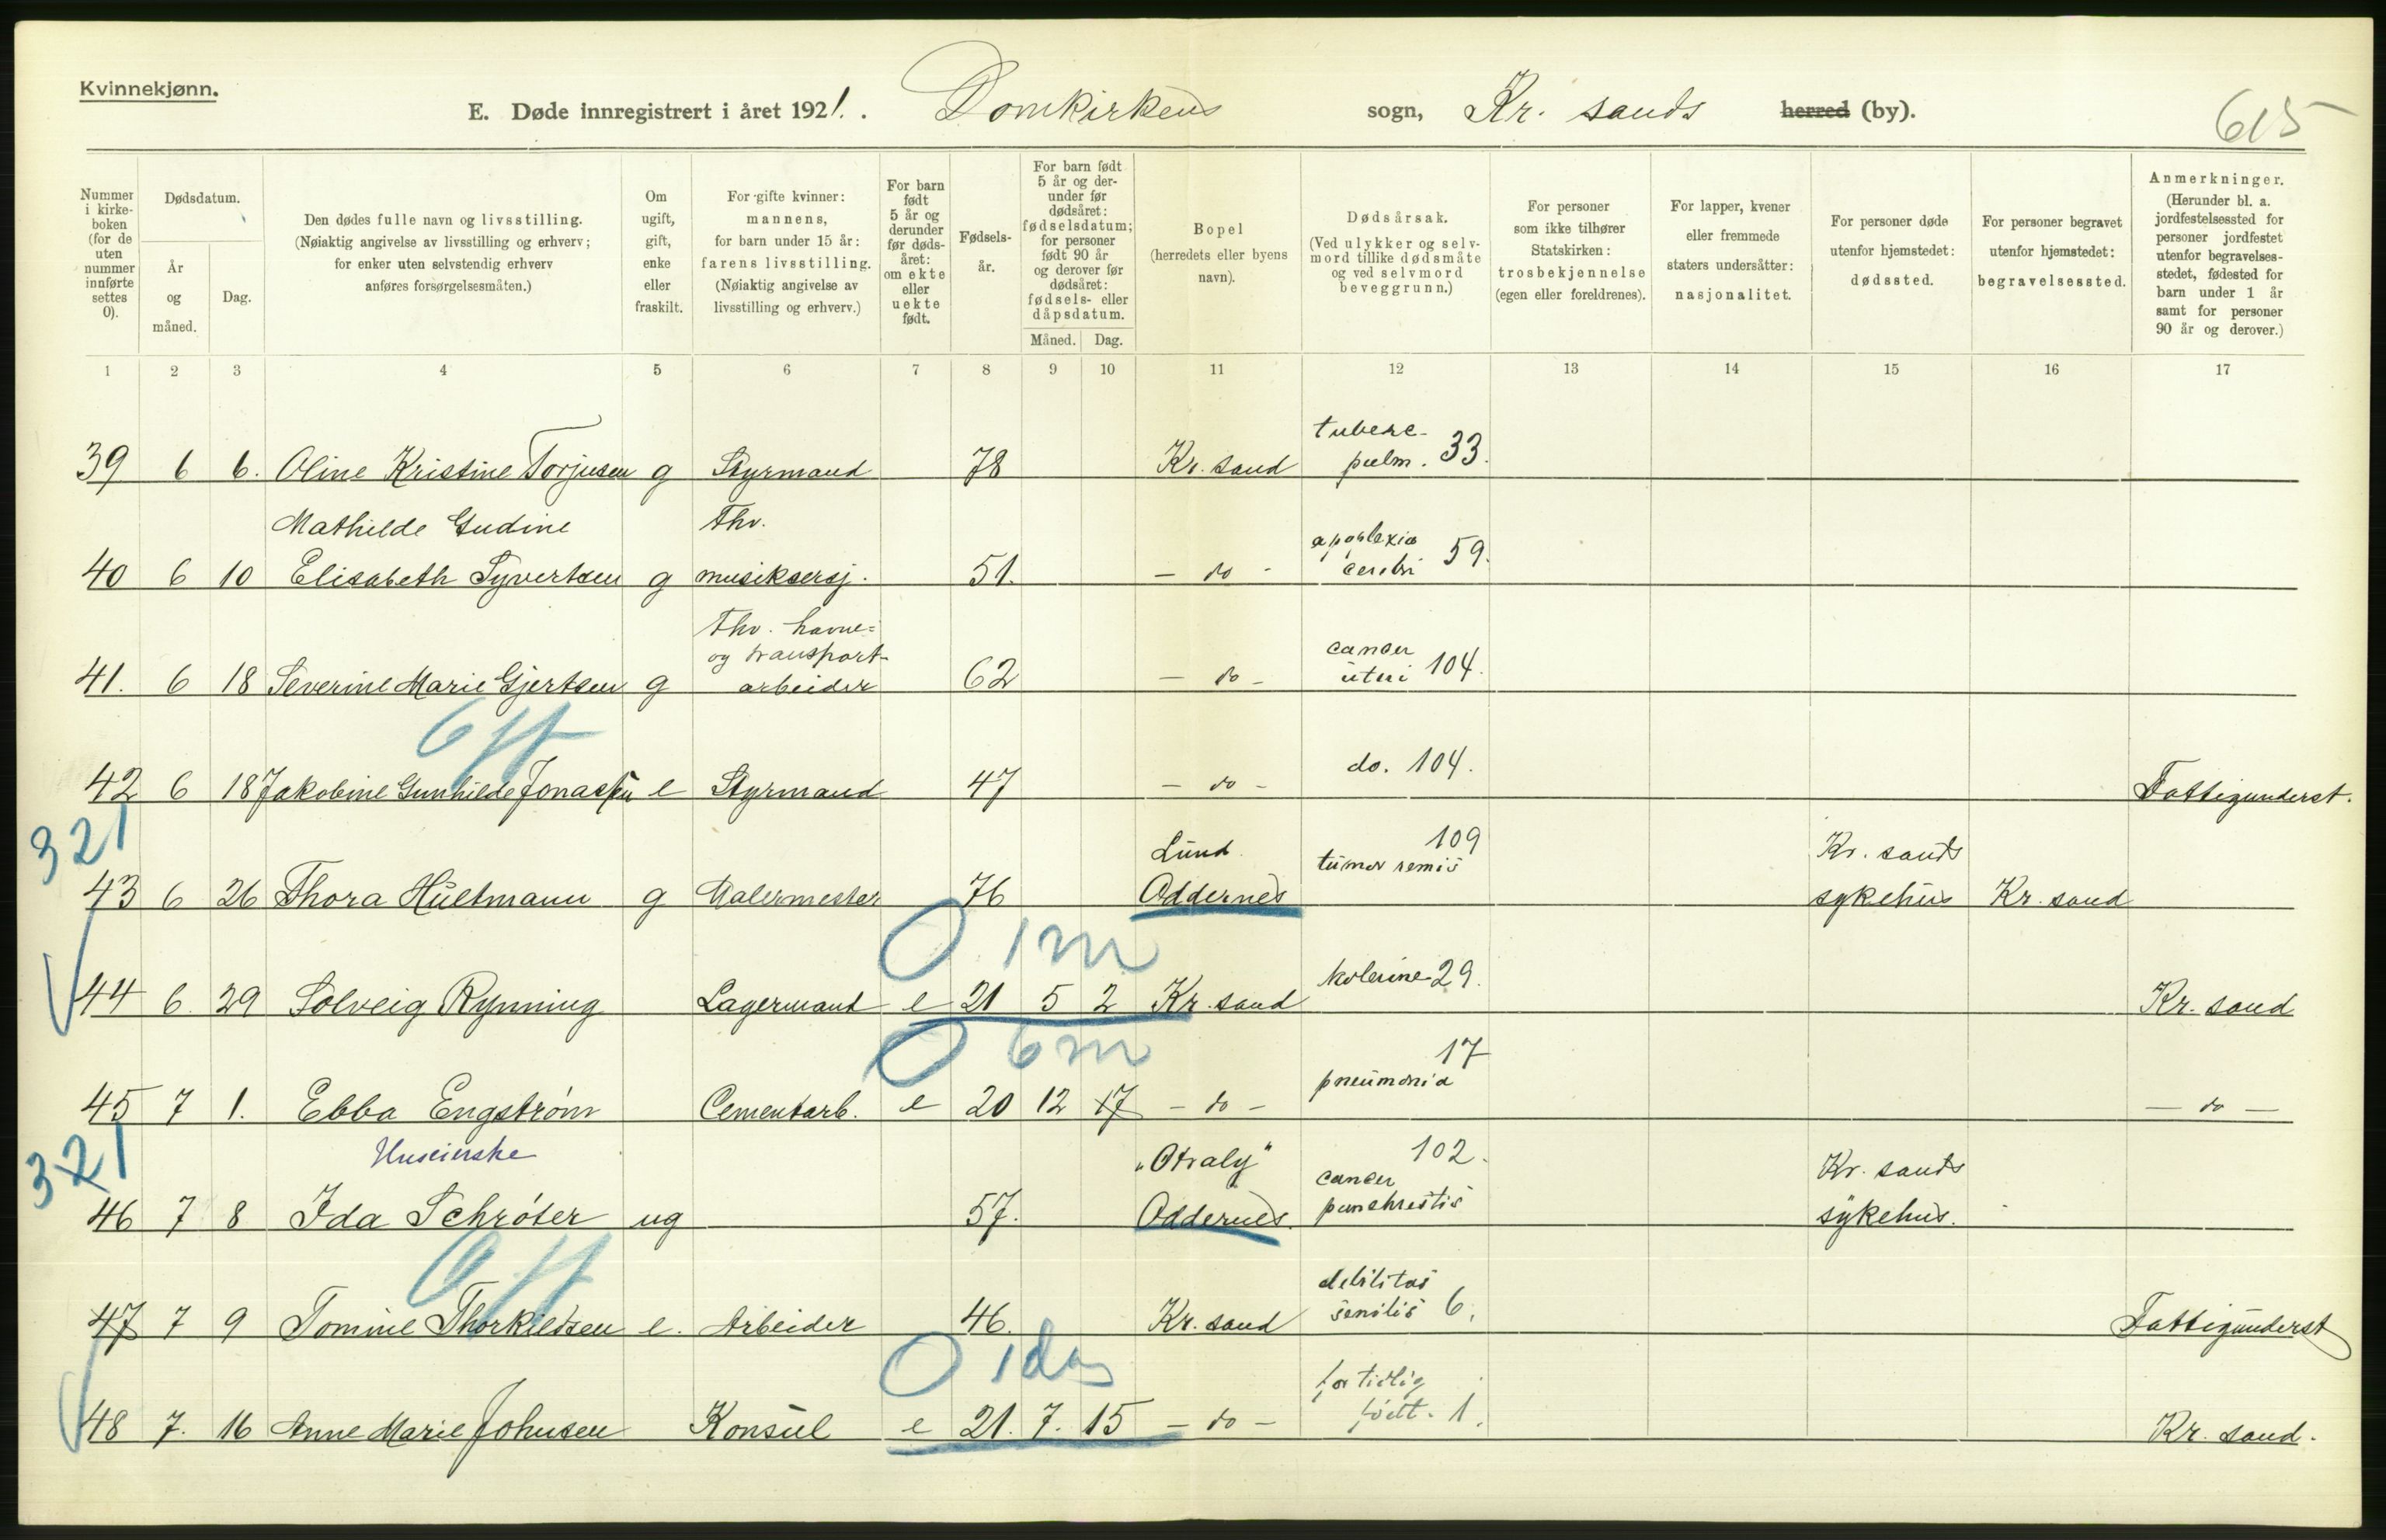 Kvinnekjønn.
E. Døde innregistrert i året 1921. Domkirkens sogn, Kr. sands herred (by).
615
Nummer i kirke-boken (for de uten nummer innførte settes 0).
Dødsdatum.
År og måned.
Dag.
Den dødes fulle navn og livsstilling. (Nøiaktig angivelse av livsstilling og erhverv; for enker uten selvstendig erhverv anføres forsørgelsesmåten.)
Om ugift, gift, enke eller fraskilt.
For gifte kvinner: mannens, for barn under 15 år: farens livsstilling. (Nøiaktig angivelse av livsstilling og erhverv.)
For barn født 5 år og derunder før døds-året: om ekte eller uekte født.
Fødsels-år.
For barn født 5 år og der-under før dødsåret: fødselsdatum; for personer født 90 år og derover før dødsåret: fødsels- eller dåpsdatum.
Måned. Dag.
Bopel (herredets eller byens navn).
Dødsårsak. (Ved ulykker og selv-mord tillike dødsmåte og ved selvmord beveggrunn.)
For personer som ikke tilhører Statskirken: trosbekjennelse (egen eller foreldrenes).
For lapper, kvener eller fremmede staters undersåtter: nasjonalitet.
For personer døde utenfor hjemstedet: dødssted.
For personer begravet utenfor hjemstedet: begravelsessted.
Anmerkninger. (Herunder bl. a. jordfestelsessted for personer jordfestet utenfor begravelses-stedet, fødested for barn under 1 år samt for personer 90 år og derover.)
1 2 3 4 5 6 7 8 9 10 11 12 13 14 15 16 17
tuberc-
39 6 6. Oline Kristine Torjusen g Styrmand 78 Kr. sand pulm. 33.
Mathilde Gudine Fhv. apoplexia
40 6 10 Elisabeth Syvertsen g musiksersj. 51. - do - cerebri 59.
Fhv. havne=
og transport- cancer
41. 6 18 Severine Marie Gjertsen g arbeider 62 - do - uteri 104.
42 6 18 Jakobine Gunhilde Jonassen e Styrmand 47 - do - do. 104. Fattigunderst.
321
Lund 109 Kr. sands
43 6 26 Thora Hultmann g Malermester 76 Oddernes tumor remis sykehus Kr. sand
0 1 m
44 6 29 Solveig Rynning Lagermand e 21 5 2 Kr. sand kolerine 29. Kr. sand
0 6 m
17
45 7 1. Ebba Engstrøm Cementarb. e 20 12 17 - do - pneumonia - do -
321
Husejerske „Otraly" 102. Kr. sands
46 7 8 Ida Schrøter ug 57. Oddernes. cancer panchreitis sykehus.
debilitas
47 7 9 Tomine Thorkildsen e. Arbeider 46. Kr. sand senilis 6. Fattigunderst
0 1 dag
for tidlig
48 7. 16 Anne Marie Johnsen Konsul e 21. 7. 15 - do - født. 1. Kr. sand.